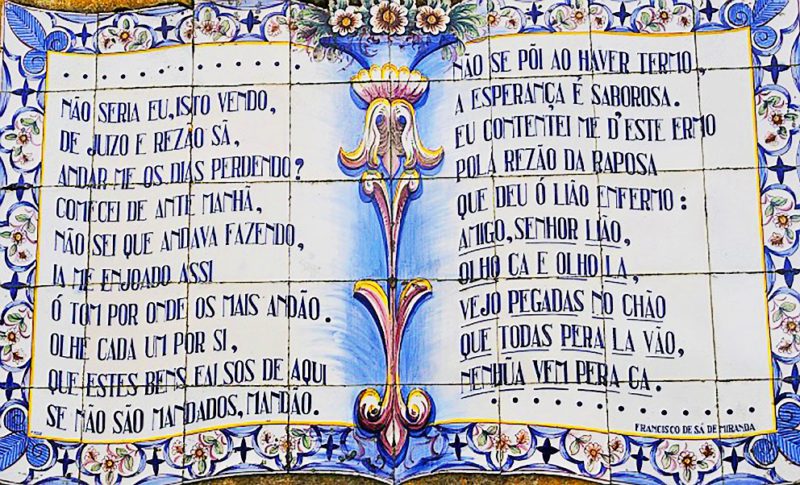 NÃO SERIA EU, ISTO VENDO,
DE JUIZO E REZÃO SÃ,
ANDAR ME OS DIAS PERDENDO?
COMECEI DE ANTE MANHÃ,
NÃO SEI QUE ANDAVA FAZENDO,
IA ME ENJOADO ASSI
Ó TOM POR ONDE OS MAIS ANDÃO.
OLHE CADA UM POR SI,
QUE ESTES BENS FALSOS DE AQUI
SE NÃO SÃO MANDADOS, MANDÃO.
NÃO SE PÕI AO HAVER TERMO,
A ESPERANÇA É SABOROSA.
EU CONTENTEI ME D'ESTE ERMO
POLA REZÃO DA RAPOSA
QUE DEU Ó LIÃO ENFERMO:
AMIGO, SENHOR LIÃO,
OLHO CA E OLHO LA,
VEJO PEGADAS NO CHÃO
QUE TODAS PERA LA VÃO,
NENHŨA VEM PERA CA.
FRANCISCO DE SÁ DE MIRANDA